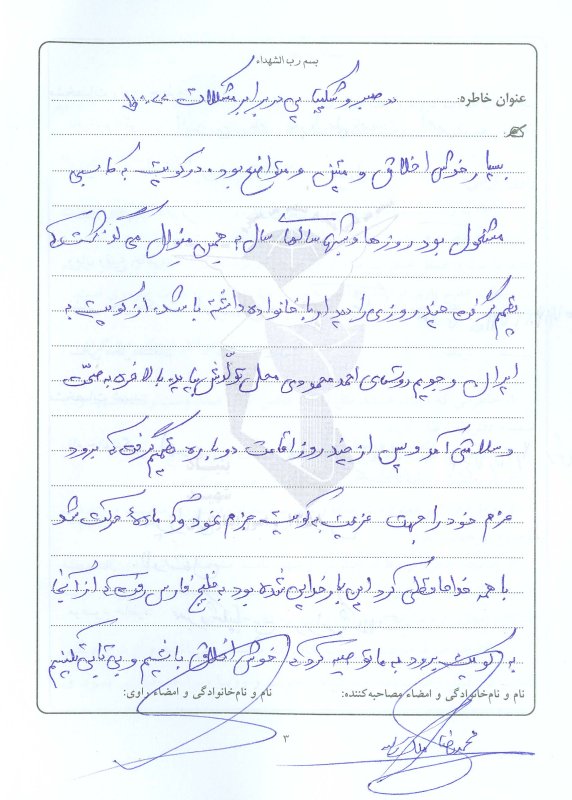 بسم رب الشهداء
عنوان خاطره: در صبر و شکیبایی در برابر مشکلات
بسیار خوش اخلاق و متین و متواضع بود. در کویت به کاسبی
مشغول بود روزها و شبهای سالهای سال به همین منوال می گذشت که
تصمیم گرفت چند روزی را دیدار با خانواده داشته باشد. از کویت به
ایران و جویم روستای احمد محمودی محل تولّدش بیاید بالاخره به صحّت
و سلامتی آمد و پس از چند روز اقامت دوباره تصمیم گرفت که برود
عزم خود را جهت عزیمت به کویت جزم نمود و آماده حرکت شد
با همه خداحافظی کرد این بار خدایی شده بود به خلیج فارس رفت که از آنجا
به کویت برود به ما توصیه کرد که خوش اخلاق باشیم و بی تابی نکنیم
نام و نام‌خانوادگی و امضاء مصاحبه‌کننده: نام و نام‌خانوادگی و امضاء راوی:
محمدرضا
۳